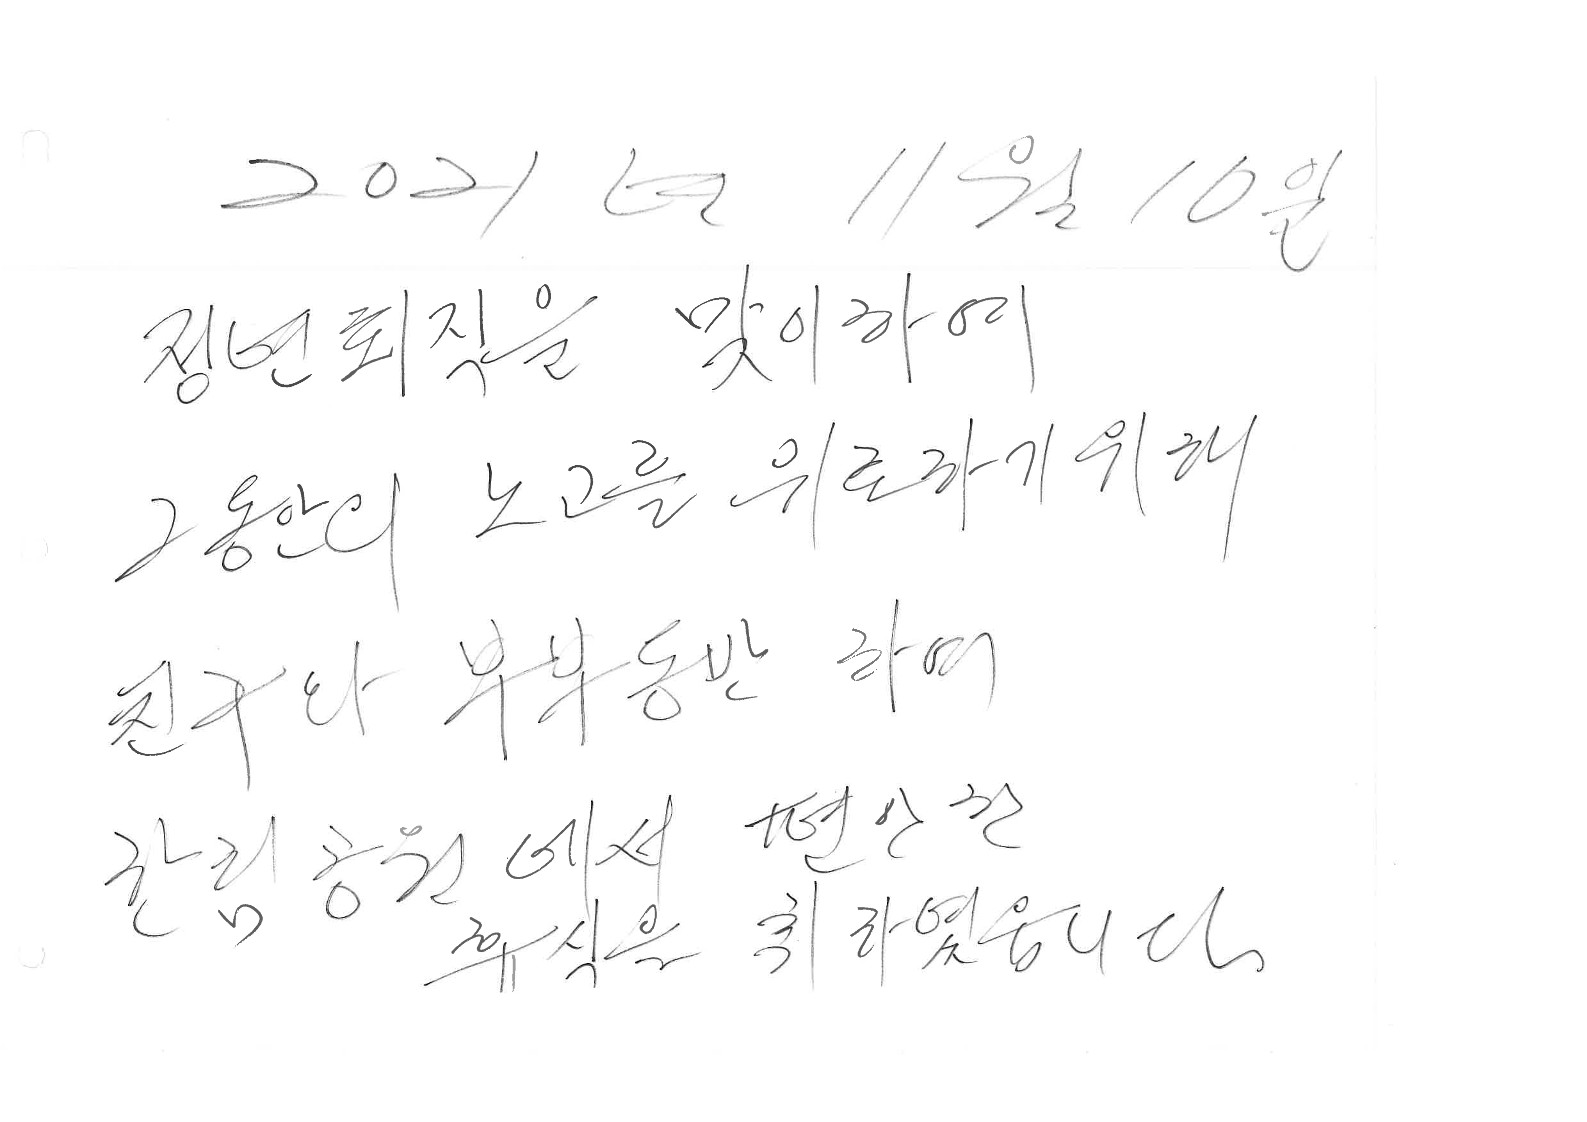 2021년 11월 10일
정년퇴직을 맞이하여
그동안의 노고를 위로하기위해
친구와 부부동반 하여
한림공원에서 편안한
휴식을 취하였읍니다.